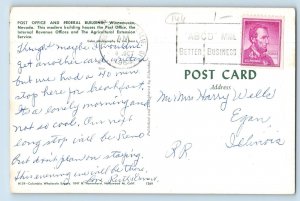 POST OFFICE AND FEDERAL BUILDING—Winnemucca,
Nevada. This modern building houses the Post Office, the
Internal Revenue Offices and The Agricultural Extension
Service.
Thought maybe I wouldn't
get another card written
but we had a 40 min
stop here for breakfast.
It's a lovely morning and
not so cool. Our next
long stop will be Reno
But don't plan on staying.
This evening we will be there.
Love Ruth
ABCD MAIL
BETTER BUSINESS
POST CARD
Address
Mr. Mrs Harry Wells
Egan,
Illinois
RR